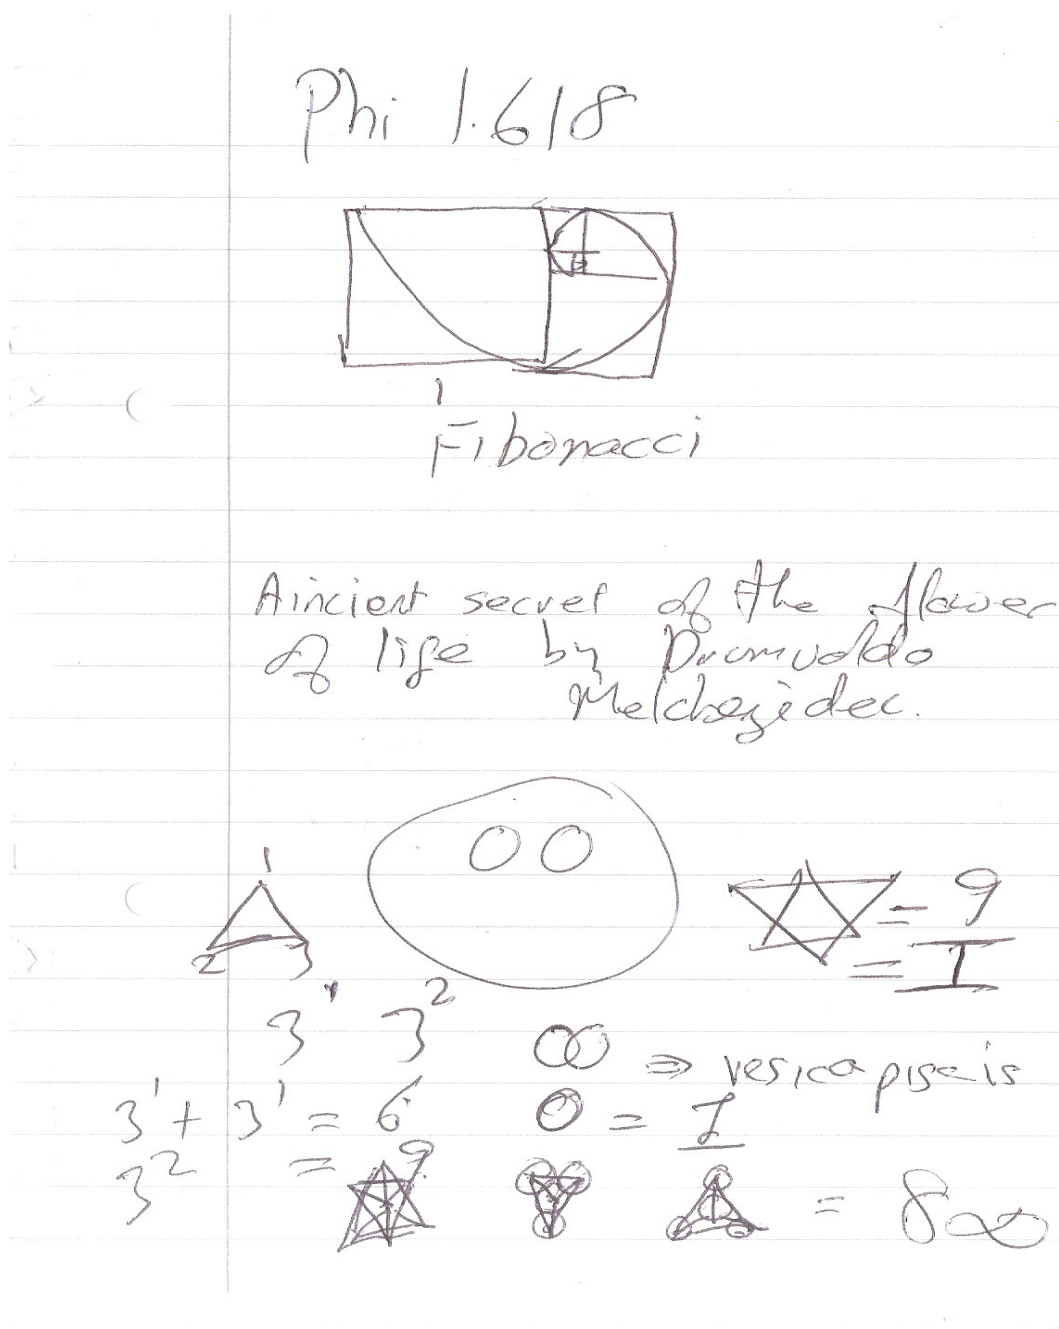 Phi 1.618
Fibonacci
Aincient secret of the flower
of life by Drumvoldo
Melchezedec.
1
2 3
= 9
= I
3¹ 3²
⇒ vesica piscis
3¹ + 3¹ = 6
0 = 1
3² = 9
= 8 ∞